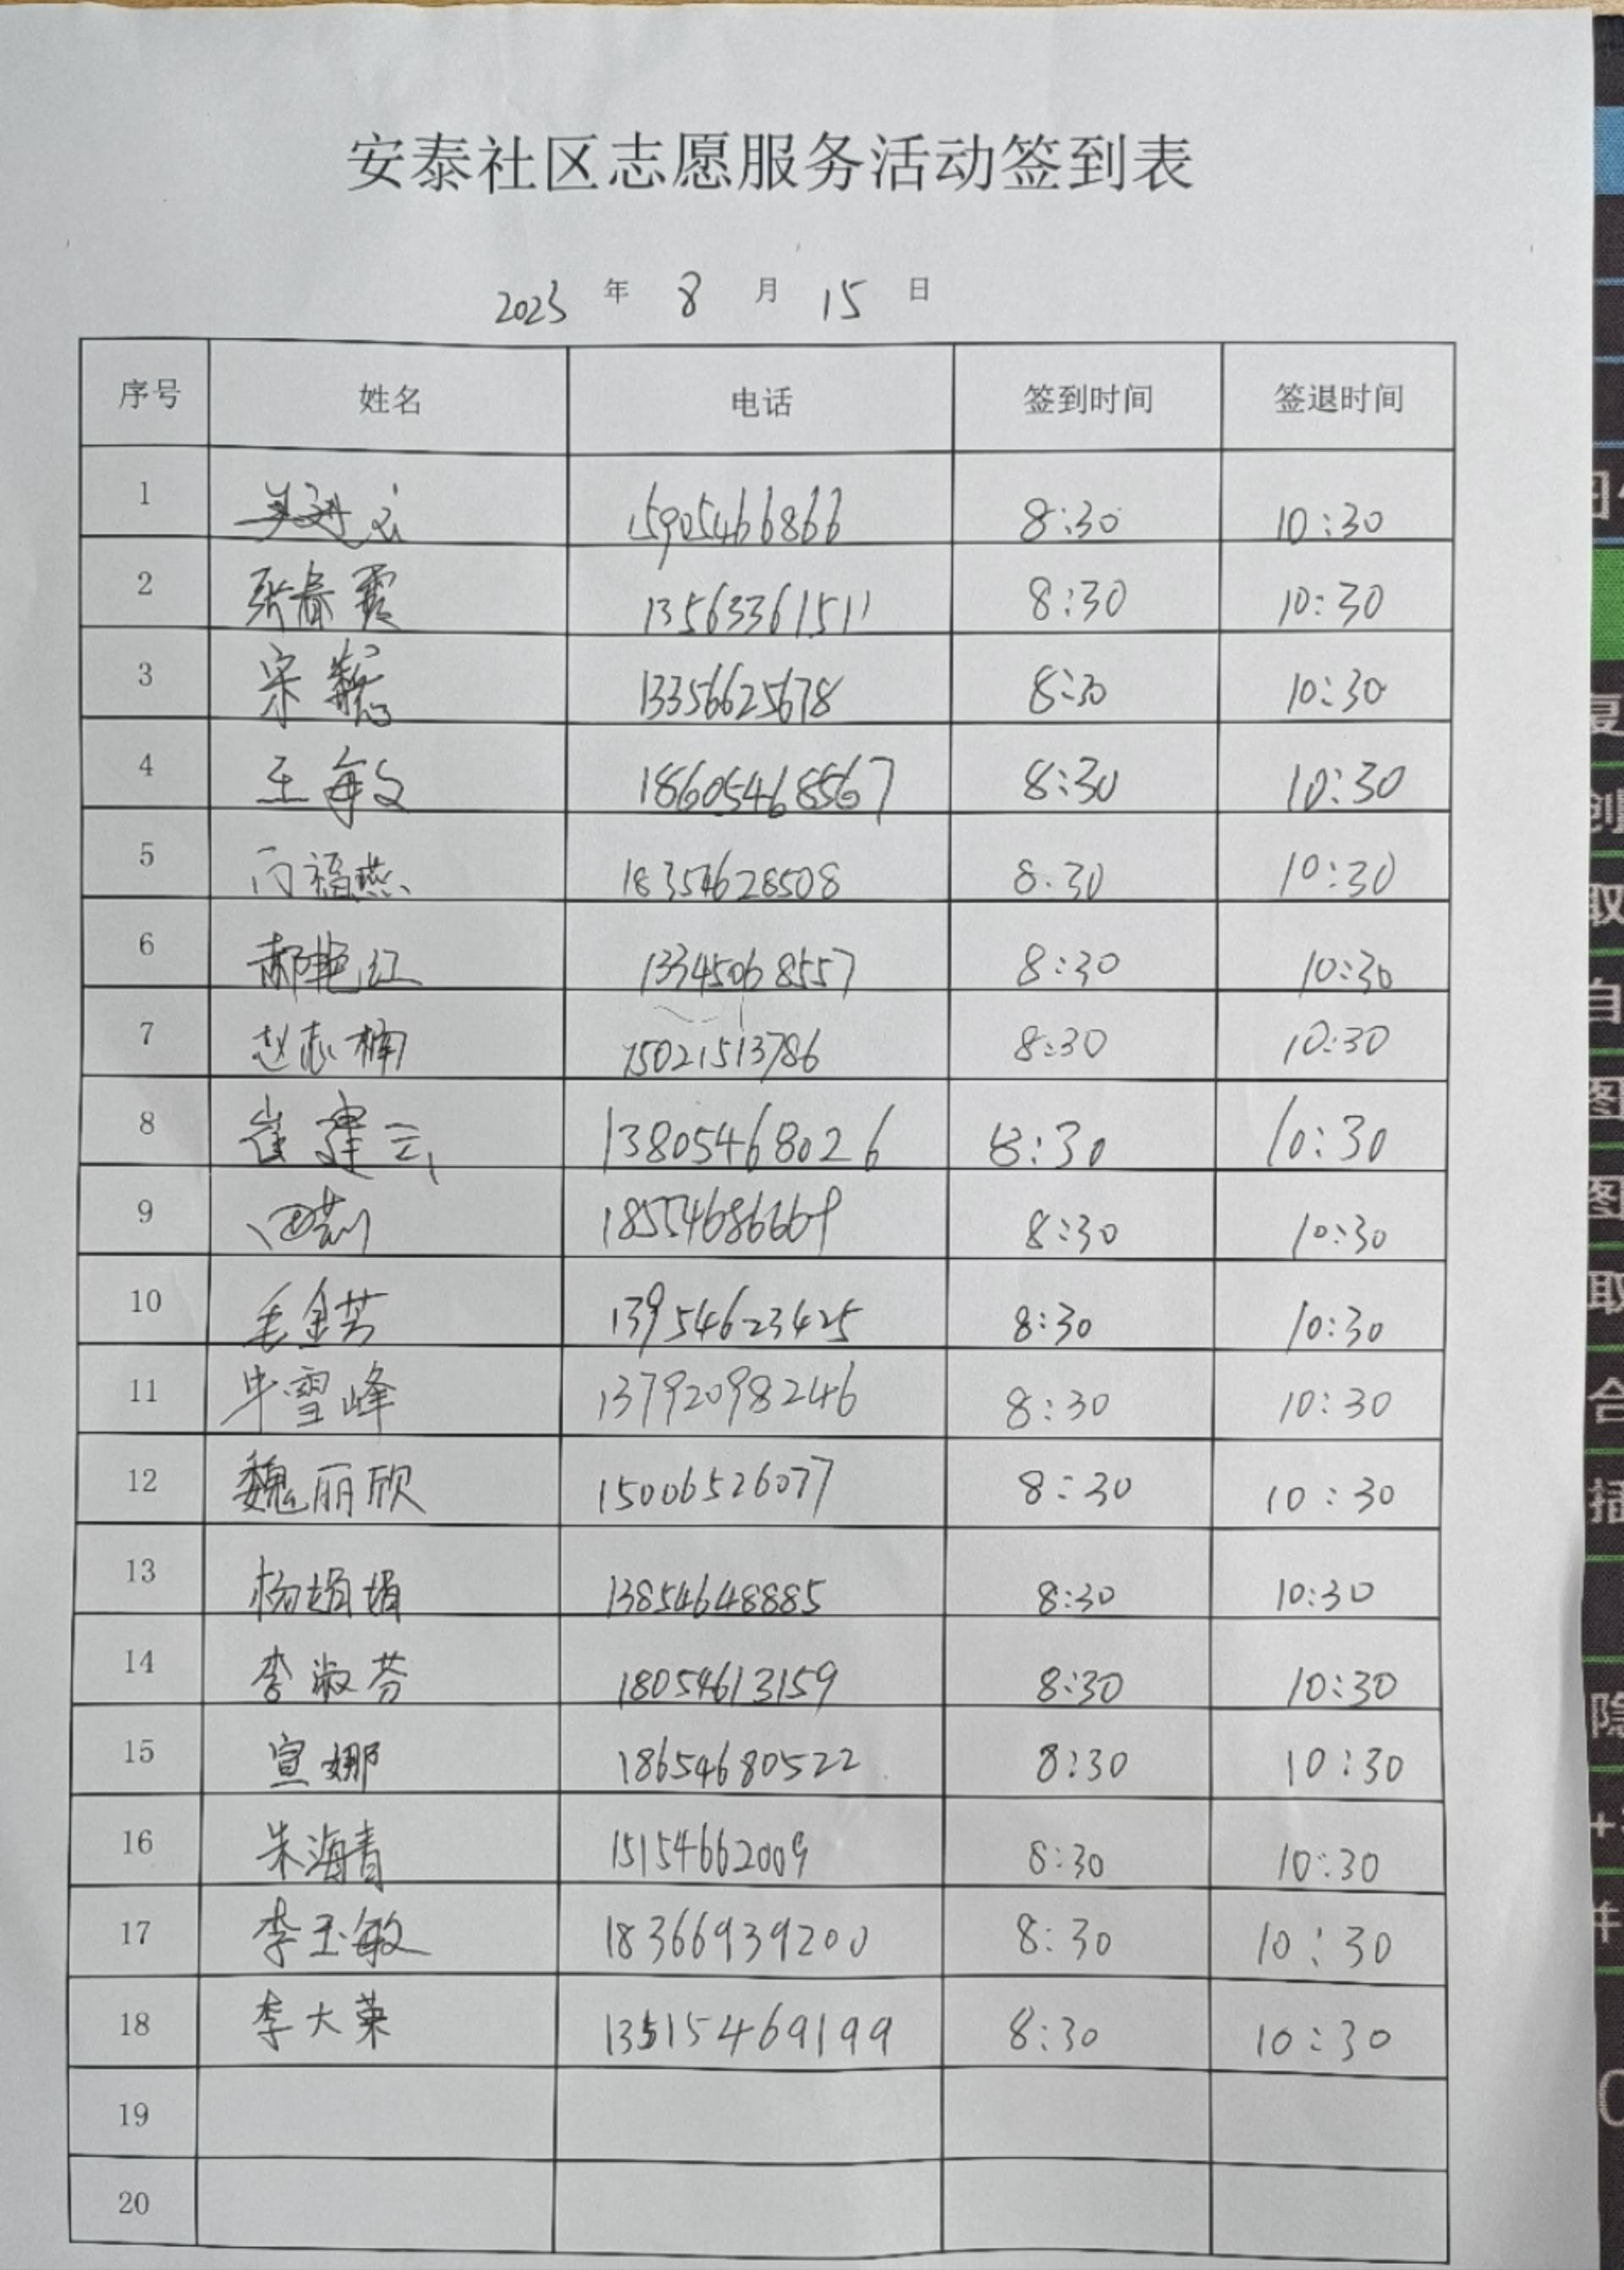 安泰社区志愿服务活动签到表
2023 年 8 月 15 日
序号 姓名 电话 签到时间 签退时间
1 15905466866 8:30 10:30
2 张春霞 13563361511 8:30 10:30
3 宋 13356625678 8:30 10:30
4 王敏 18605468567 8:30 10:30
5 福燕 18354628508 8:30 10:30
6 郝艳红 13345068557 8:30 10:30
7 赵志楠 15021513786 8:30 10:30
8 崔建云 13805468026 8:30 10:30
9 田莉 18554686669 8:30 10:30
10 毛金芳 13954623425 8:30 10:30
11 牛雪峰 13792098246 8:30 10:30
12 魏丽欣 15006526077 8:30 10:30
13 杨娟娟 13854648885 8:30 10:30
14 李淑芬 18054613159 8:30 10:30
15 宣娜 18654680522 8:30 10:30
16 朱海青 15154662009 8:30 10:30
17 李玉敏 18366939200 8:30 10:30
18 李大荣 8:30 10:30
19
20
复
创
取
白
图
图
取
合
插
隐